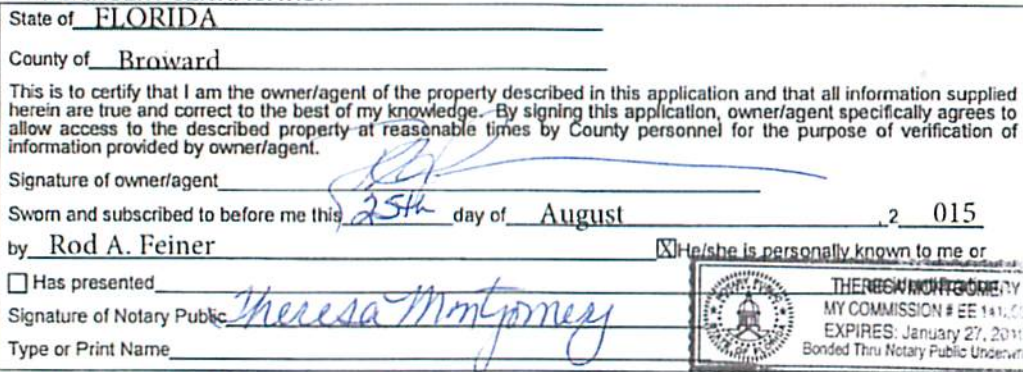 State of FLORIDA
County of Broward
This is to certify that I am the owner/agent of the property described in this application and that all information supplied
herein are true and correct to the best of my knowledge. By signing this application, owner/agent specifically agrees to
allow access to the described property at reasonable times by County personnel for the purpose of verification of
information provided by owner/agent.
Signature of owner/agent
Sworn and subscribed to before me this 25th day of August , 2 015
by Rod A. Feiner X He/she is personally known to me or
Has presented
Signature of Notary Public Theresa Montgomery
Type or Print Name
THERESA MONTGOMERY
MY COMMISSION # EE
EXPIRES: January 27,
Bonded Thru Notary Public